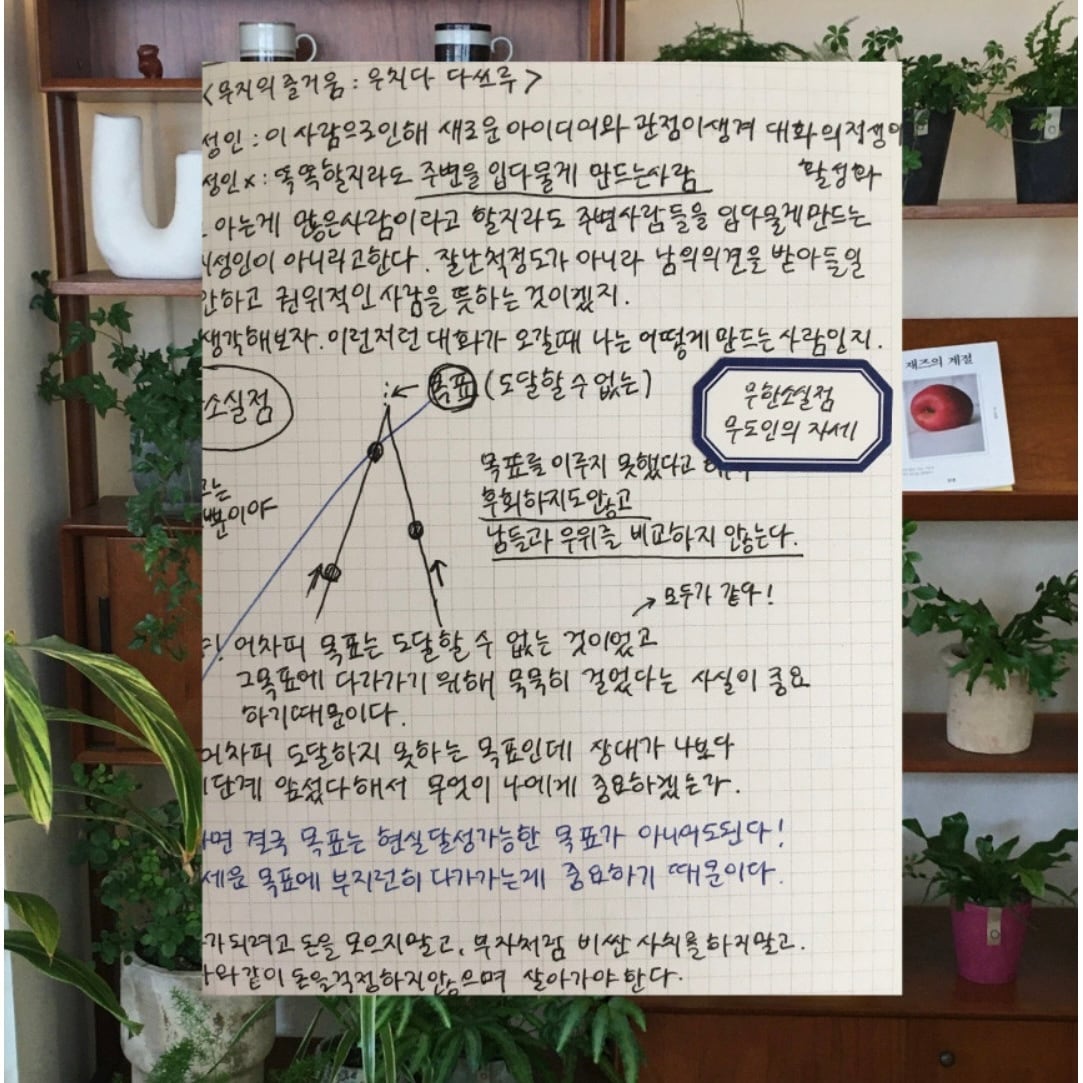 <무지의 즐거움 : 우치다 다쓰루>
성인 : 이 사람으로인해 새로운 아이디어와 관점이생겨 대화의정생이
활성화
성인x : 똑똑할지라도 주변을 입다물게 만드는사람
아는게 많은사람이라고 할지라도 주변사람들을 입다물게만드는
지성인이 아니라고한다. 잘난척정도가 아니라 남의의견을 받아들일
안하고 권위적인 사람을 뜻하는 것이겠지.
생각해보자. 이런저런 대화가 오갈때 나는 어떻게 만드는 사람인지.
소실점
← 목표 (도달할 수 없는)
무한소실점
무도인의 자세
목표를 이루지 못했다고
후회하지도않고
남들과 우위를 비교하지 않는다.
는
뿐이야
→ 모두가 같다!
어차피 목표는 도달할 수 없는 것이었고
그목표에 다가가기 위해 묵묵히 걸었다는 사실이 중요
하기때문이다.
어차피 도달하지 못하는 목표인데 상대가 나보다
1단계 앞섰다해서 무엇이 나에게 중요하겠는가.
면 결국 목표는 현실달성가능한 목표가 아니어도된다!
세운 목표에 부지런히 다가가는게 중요하기 때문이다.
가되려고 돈을 모으지말고, 부자처럼 비싼 사치를하지말고.
와같이 돈을걱정하지않으며 살아가야 한다.
재즈의 계절